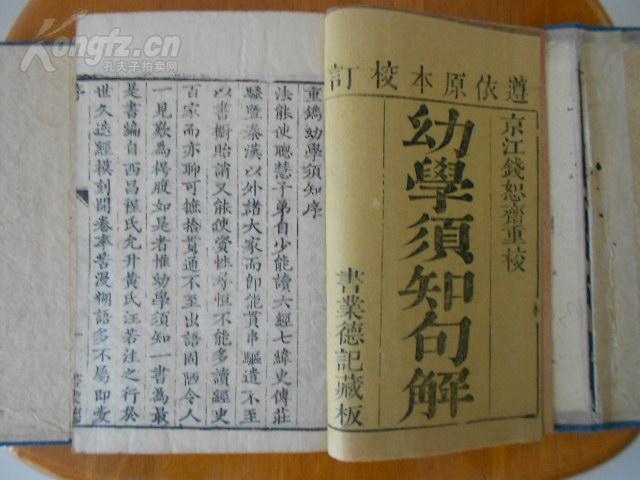 Kongfz.cn
孔夫子拍卖网
遵依原本校訂
京江錢恕齋重校
幼學須知句解
書業德記藏板
重鐫幼學須知序
法能使聰慧子弟自少能讀六經七緯史傳莊
騷暨秦漢以外諸大家而即能貫串驅遣不至
以書櫥貽誚又能使資性等恒不能多讀經史
百家而亦聊可摭拾貫通不至出語固陋令人
一見歎為枵腹如是者惟幼學須知一書為最
是書編自西昌程氏允升黃氏汪若注之行
世久迭經模刻開卷率苦漫糊語多不屬即